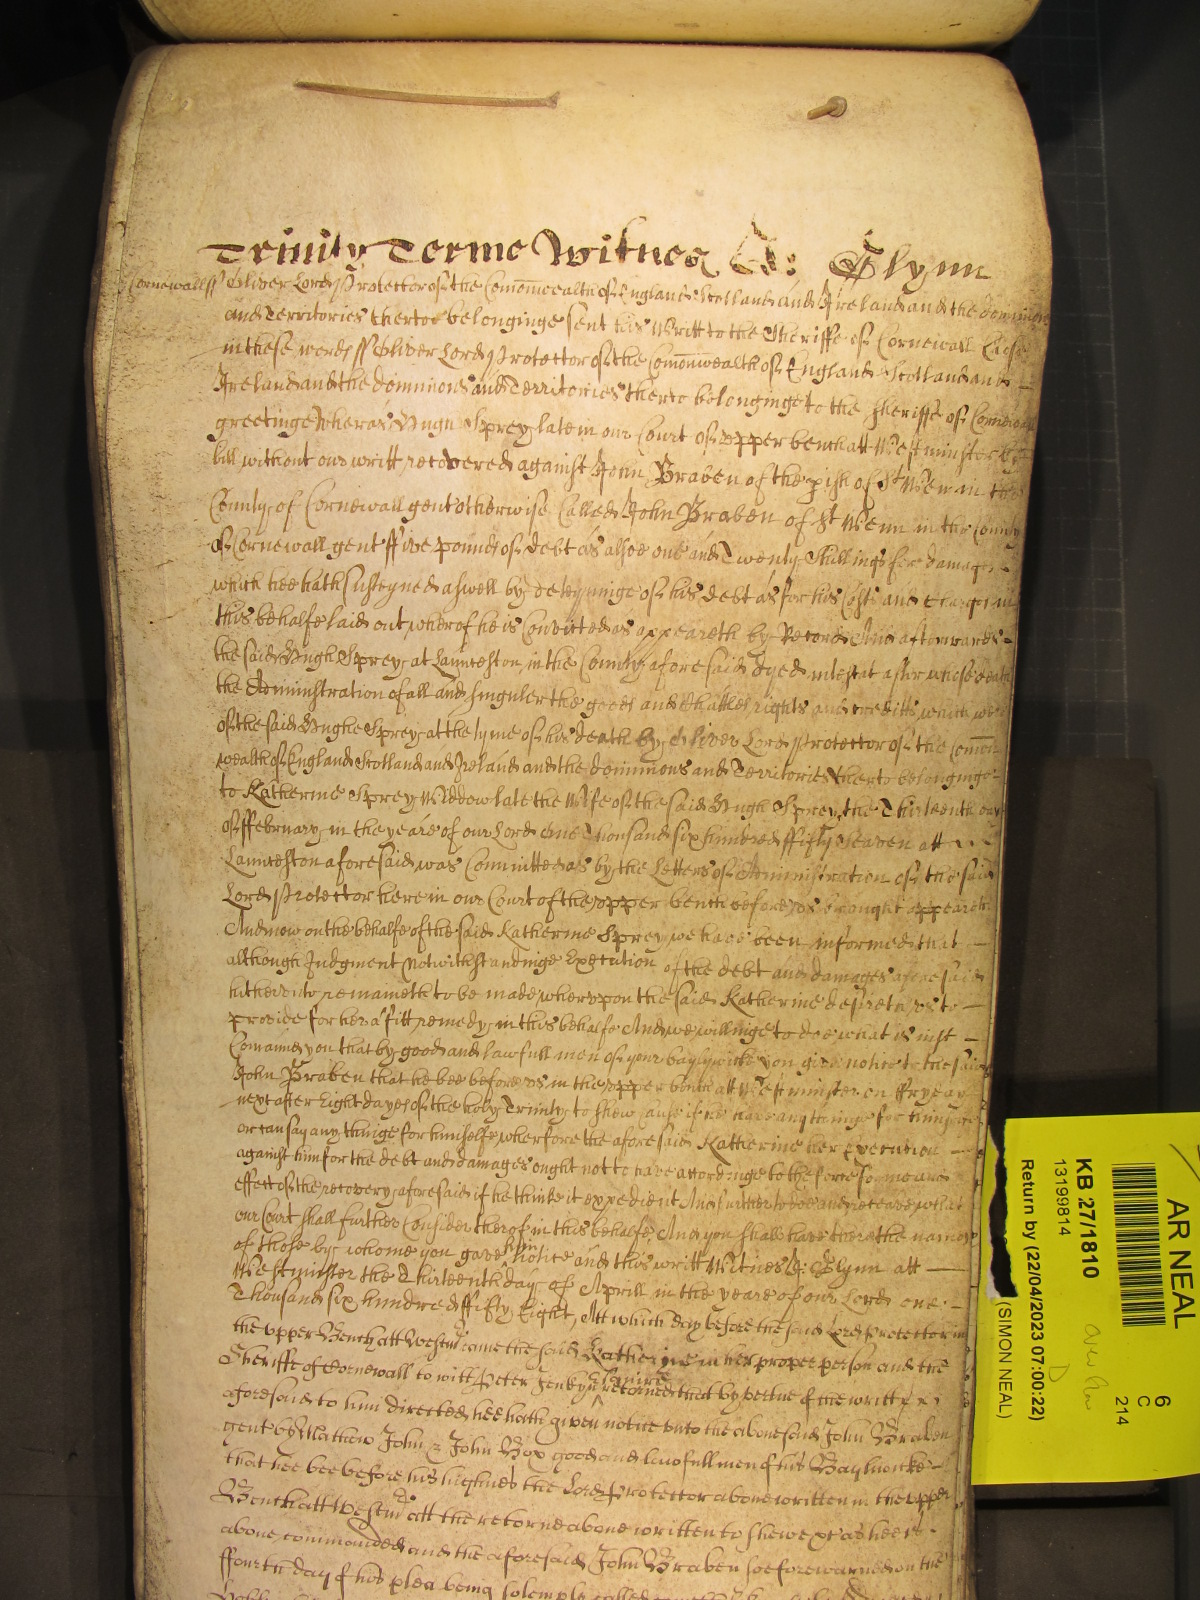 Trinity Terme Witnes &c: Glynn
Cornewall ss Oliver Lord Protector of the Comonwealth of England Scotland and Ireland and the dominions
and Territories therto belonginge sent his Writt to the Sheriffe of Cornewall
in these words ss Oliver Lord Protector of the Comonwealth of England Scotland and
Ireland and the dominions and Territories therto belonginge to the Sheriffe of Cornewall
greetinge Wheras Hugh Sprey late in our Court of upper bench att Westminster by
bill without our writt recovered against John Braben of the pish of St Wenn in the
County of Cornewall gent otherwise Called John Braben of St Wenn in the County
of Cornewall gent ffive pounds of debt as alsoe one and Twenty Shillings for damages
which hee hath susteyned aswell by deteyninge of his debt as for his Costs and Charges in
this behalfe laid out wherof he is Convicted as appeareth by Record And afterwards
the said Hugh Sprey at Launceston in the County aforesaid dyed intestat after whose death
the Administration of all and singuler the goods and Chattles rights and creditts which were
of the said Hughe Sprey at the tyme of his death by Oliver Lord Protector of the Comon
wealth of England Scotland and Ireland and the dominions and Territories therto belonginge
to Katherine Sprey Widdow late the Wife of the said Hugh Sprey the Thirteenth day
of ffebruary in the yeare of our Lord One Thousand six hundred ffifty Seaven att
Launceston aforesaid was Committed as by the Letters of Administration of the said
Lord Protector here in our Court of the upper bench before us brought appeareth
And now on the behalfe of the said Katherine Sprey we have been informed that
although Judgment Notwithstandinge Execution of the debt and damages aforesaid
hitherunto remaineth to be made wherupon the said Katherine desireth us to
provide for her a fitt remedy in this behalfe And we willinge to doe what is just
Comand you that by good and lawfull men of your baylywicke you give notice to the said
John Braben that he bee before us in the upper bench att Westminster on ffryday
next after Eight dayes of the holy Trinity to shew cause if he have any thinge for himselfe
or can say any thinge for himselfe wherfore the aforesaid Katherine her Execution
against him for the debt and damages ought not to have accordinge to the force forme and
effect of the recovery aforesaid if he thinke it expedient And further to doe and receave what
our Court shall further Consider therof in this behalfe, And you shall have there the names
of those by whome you gave him notice and this writt Witnes J: Glynn att
Westminster the Thirteenth day of Aprill in the yeare of our Lord one
Thousand six hundred ffifty Eight, Att which day before the said Lord Protector in
the upper Bench att Westmr came the said Katherine in her proper person and the
Sheriffe of Cornewall to witt Peter Jenkyn returned that by vertue of the writt
aforesaid to him directed hee hath given notice unto the abovesaid John Braben
gent by Mathew John & John Box good and lawfull men of his Baylwicke
that hee bee before his highnes the Lord Protector above written in the upper
Bench att Westmr att the returne above written to shewe &c as hee is
above commanded and the aforesaid John Braben soe forewarned on the
ffourth day of his plea being solemply called
AR NEAL
6
C
214
KB 27/1810
13199814
Return by (22/04/2023 07:00:22)
(SIMON NEAL)